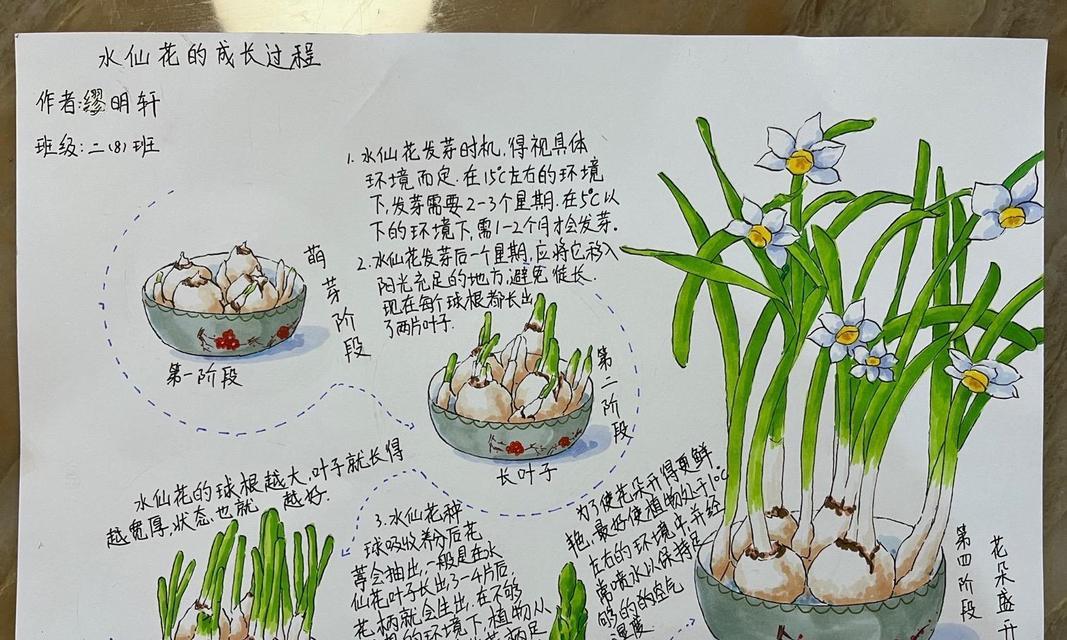 水仙花的成长过程
作者:缪明轩
班级:二(8)班
1. 水仙花发芽时机,得视具体
环境而定.在15℃左右的环境
下,发芽需要2-3个星期.在5℃以
下的环境下,需1-2个月才会发芽.
2. 水仙花发芽后一个星期,应将它移入
阳光充足的地方,避免徒长.
现在每个球根都长出
了两片叶子.
萌芽阶段
第一阶段
第二阶段
长叶子
水仙花的球根越大,叶子就长得
越宽厚,状态也就越好.
3. 水仙花种
球吸收养分后花
葶会抽出,一般是在水
仙花叶子长出3-4片后,
花柄就会生出.在不够
的环境下,植物从
花柄足
为了使花朵开得更鲜
艳,最好使植物处于10℃
左右的环境中,并经
常喷水以保持足
够的的空气
湿度
第四阶段
花朵盛开